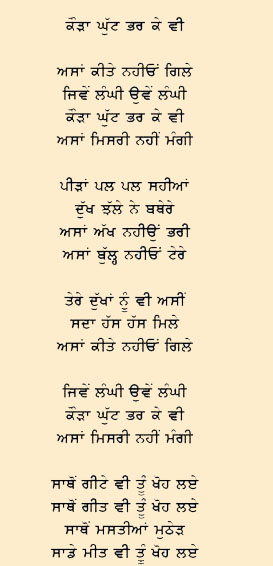 ਕੌੜਾ ਘੁੱਟ ਭਰ ਕੇ ਵੀ
ਅਸਾਂ ਕੀਤੇ ਨਹੀਓਂ ਗਿਲੇ
ਜਿਵੇਂ ਲੰਘੀ ਉਵੇਂ ਲੰਘੀ
ਕੌੜਾ ਘੁੱਟ ਭਰ ਕੇ ਵੀ
ਅਸਾਂ ਮਿਸਰੀ ਨਹੀਂ ਮੰਗੀ
ਪੀੜਾਂ ਪਲ ਪਲ ਸਹੀਆਂ
ਦੁੱਖ ਝੱਲੇ ਨੇ ਬਥੇਰੇ
ਅਸਾਂ ਅੱਖ ਨਹੀਉਂ ਭਰੀ
ਅਸਾਂ ਬੁੱਲ੍ਹ ਨਹੀਓਂ ਟੇਰੇ
ਤੇਰੇ ਦੁੱਖਾਂ ਨੂੰ ਵੀ ਅਸੀਂ
ਸਦਾ ਹੱਸ ਹੱਸ ਮਿਲੇ
ਅਸਾਂ ਕੀਤੇ ਨਹੀਓਂ ਗਿਲੇ
ਜਿਵੇਂ ਲੰਘੀ ਉਵੇਂ ਲੰਘੀ
ਕੌੜਾ ਘੁੱਟ ਭਰ ਕੇ ਵੀ
ਅਸਾਂ ਮਿਸਰੀ ਨਹੀਂ ਮੰਗੀ
ਸਾਥੋਂ ਗੀਟੇ ਵੀ ਤੂੰ ਖੋਹ ਲਏ
ਸਾਥੋਂ ਗੀਤ ਵੀ ਤੂੰ ਖੋਹ ਲਏ
ਸਾਥੋਂ ਮਸਤੀਆਂ ਮੁਠੇੜ
ਸਾਡੇ ਮੀਤ ਵੀ ਤੂੰ ਖੋਹ ਲਏ